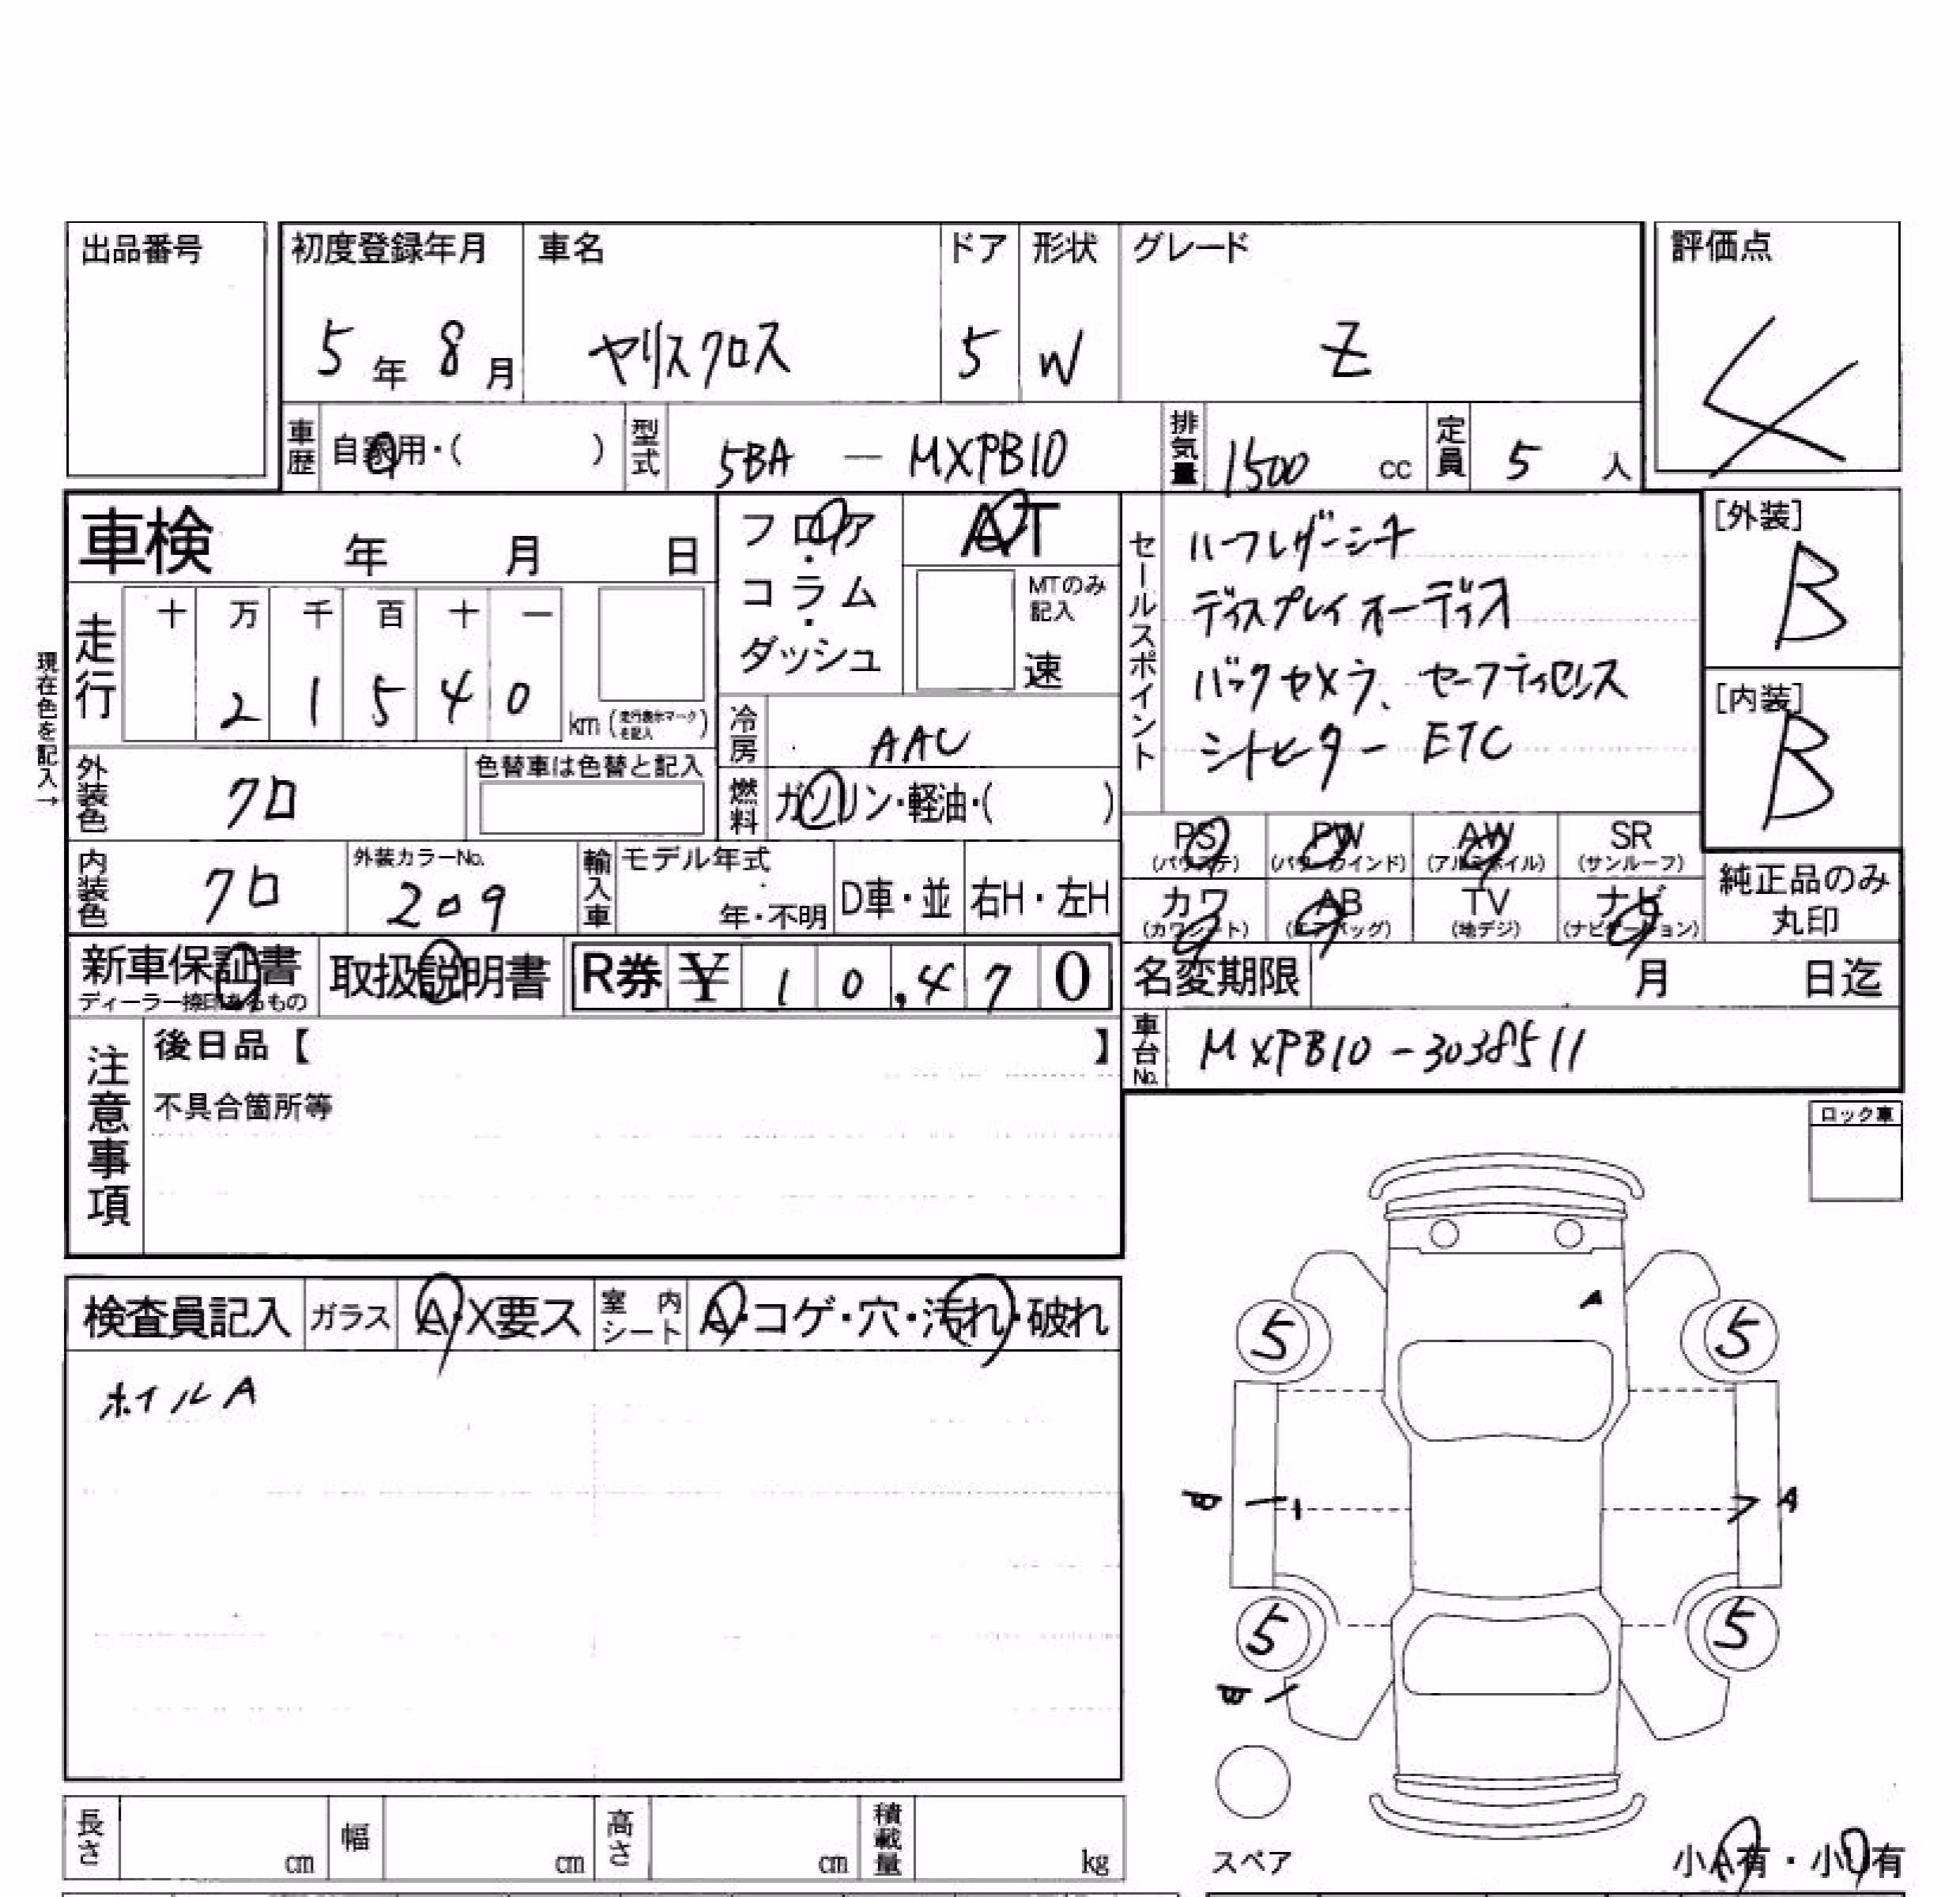 出品番号
初度登録年月 車名 ドア 形状 グレード 評価点
5年 8月 ヤリスクロス 5 W Z 4
車歴 自家用・( ) 型式 5BA — MXPB10 排気量 1500 cc 定員 5 人
車検 年 月 日
フロア・コラム・ダッシュ
AT
MTのみ記入
速
セールスポイント
ハーフレザーシート
ディスプレイオーディオ
バックカメラ、セーフティセンス
シートヒーター ETC
[外装]
B
[内装]
B
現在色を記入→
走行 十 万 千 百 十 一
2 1 5 4 0 km (走行表示マークを記入)
冷房 AAC
燃料 ガソリン・軽油・( )
外装色 クロ 色替車は色替と記入
内装色 クロ 外装カラーNo. 209 輸入車 モデル年式 年・不明 D車・並 右H・左H
PS (パワステ) PW (パワーウインド) AW (アルミホイル) SR (サンルーフ)
カワ (カワシート) AB (エアバッグ) TV (地デジ) ナビ (ナビゲーション)
純正品のみ丸印
新車保証書 ディーラー捺印あるもの 取扱説明書 R券 ¥ 10,470
名変期限 月 日迄
車台No. MXPB10-3038511
注意事項
後日品【 】
不具合箇所等
ロック車
検査員記入 ガラス A・X要ス 室内シート A・コゲ・穴・汚れ・破れ
ホイルA
A
5 5
A
5 5
スペア
小A有・小U有
長さ cm 幅 cm 高さ cm 積載量 kg